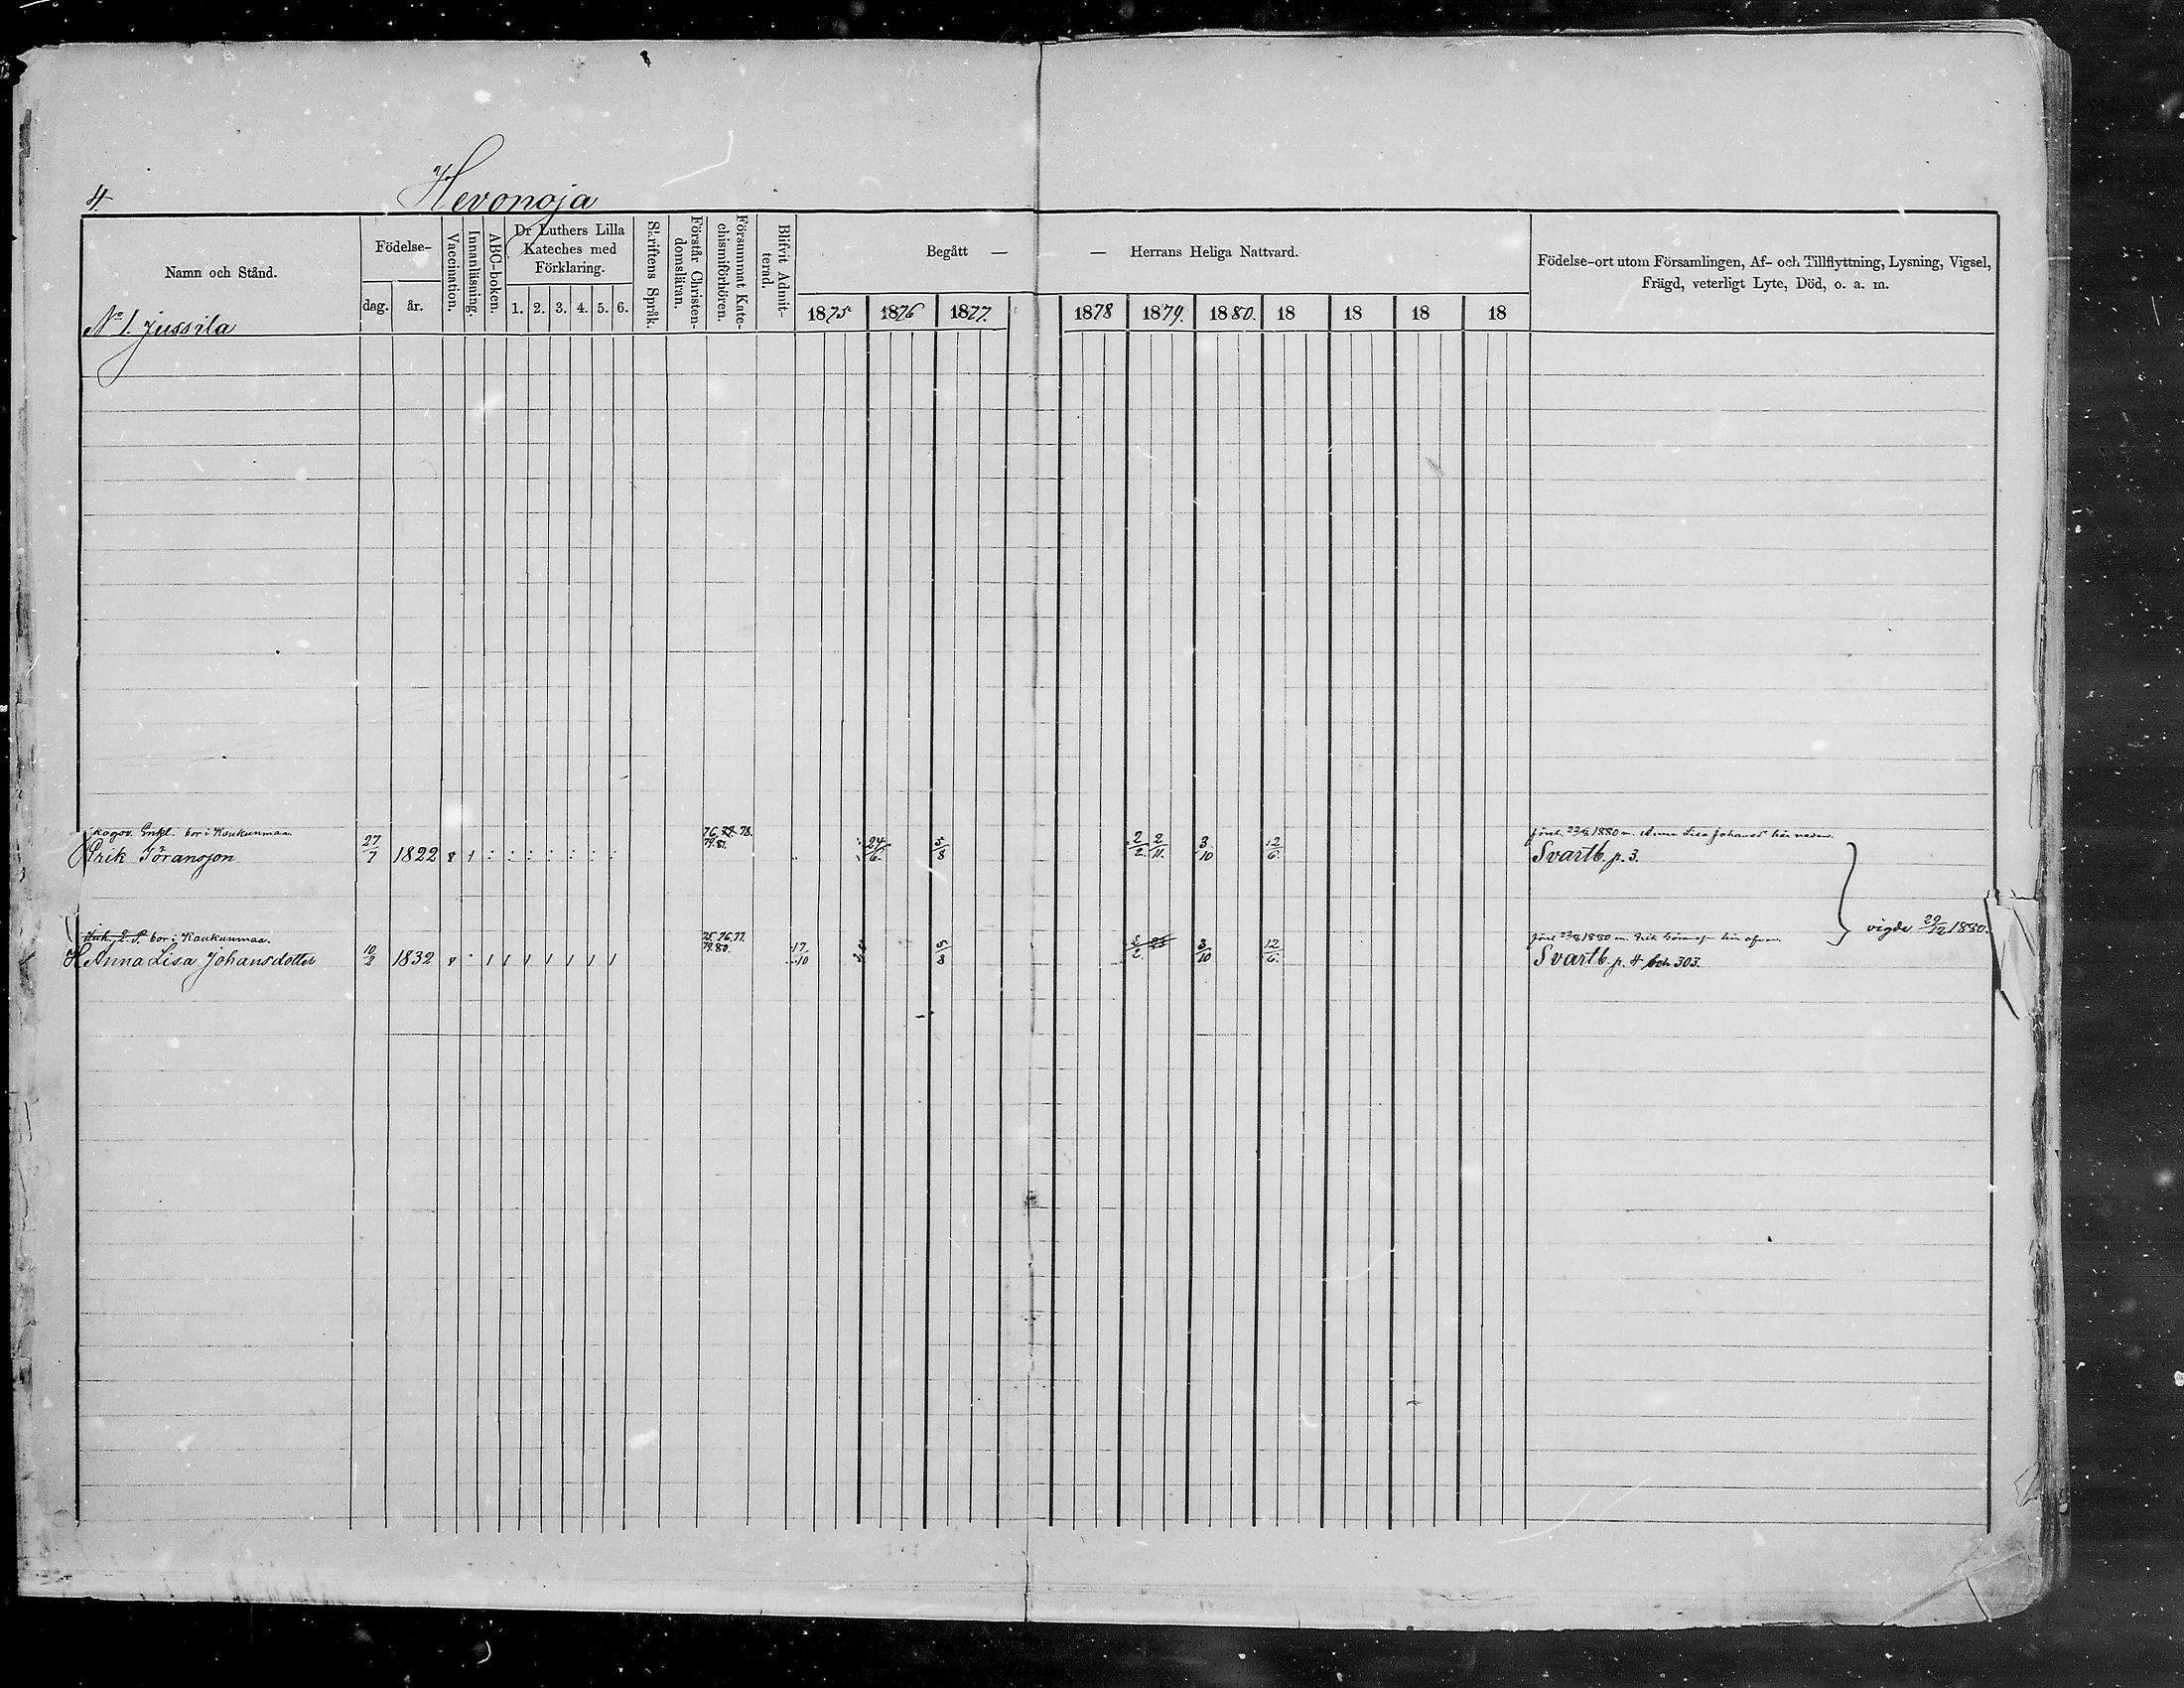 4.
Hevonoja
Namn och Stånd.
Födelse-
dag.
år.
Vaccination.
Innanläsning.
ABC-boken.
Dr Luthers Lilla
Kateches med
Förklaring.
1. 2. 3. 4. 5. 6.
Skriftens Språk.
Förstår Christen-
domsläran.
Försummat Kate-
chismiförhören.
Blifvit Admit-
terad.
Begått — — Herrans Heliga Nattvard.
1875 1876 1877. 1878 1879. 1880. 18 18 18 18
Födelse-ort utom Församlingen, Af- och Tillflyttning, Lysning, Vigsel,
Frägd, veterligt Lyte, Död, o. a. m.
No 1. Jussila
Enkl. bor i Kaukunmaa. 76. 77. 78. 1880 m. Anna Lisa Johansd här nedan.
79. 81.
Erik Göransson 27/7 1822 24/6. 5/8 2/2. 2/11. 3/10 12/6. Svartb. p. 3.
vigde 29/12 1880.
bor i Kaukunmaa. 75. 76. 77. 1880 m. Erik här ofvan
79. 80.
Anna Lisa Johansdotter 10/2 1832 17/10 5/8 3/10 12/6. Svartb. p. 4 och 303.